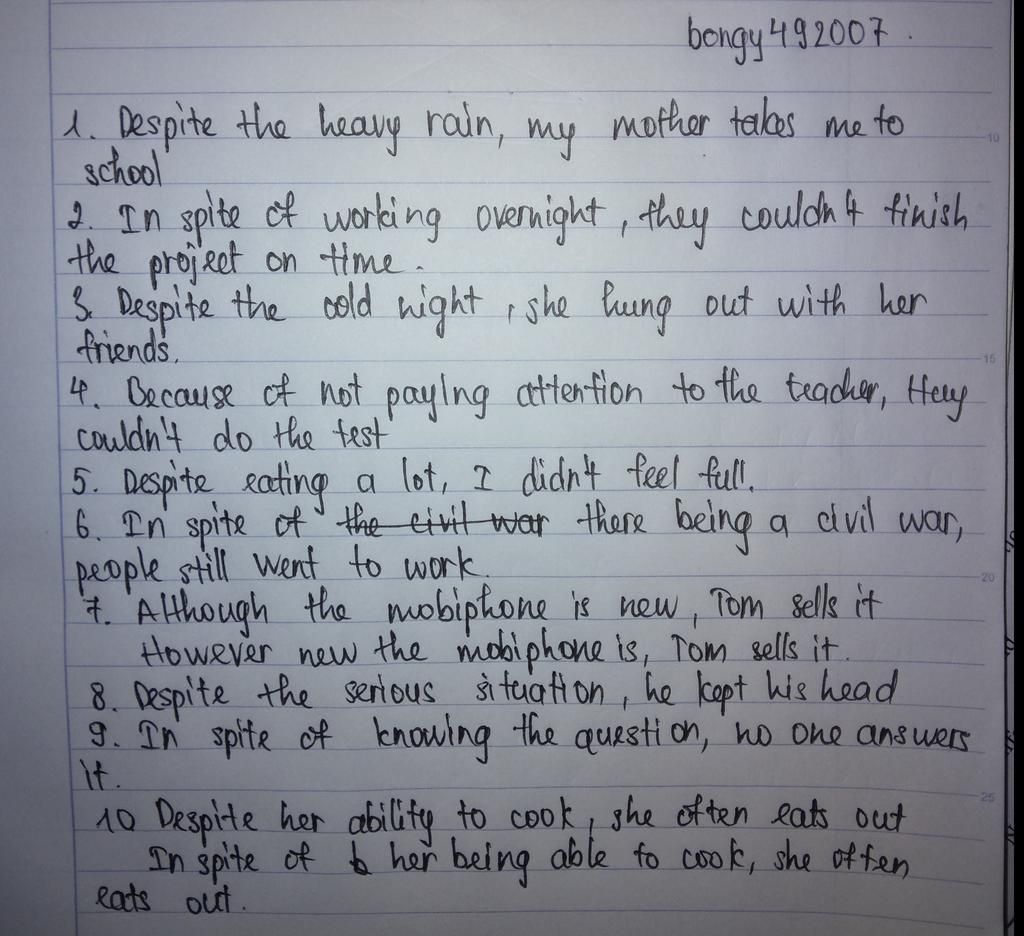 bongy492007.
1. Despite the heavy rain, my mother takes me to
school
2. In spite of working overnight, they couldn't finish
the project on time.
3. Despite the cold night, she hung out with her
friends.
4. Because of not paying attention to the teacher, they
couldn't do the test
5. Despite eating a lot, I didn't feel full.
6. In spite of the civil war there being a civil war,
people still went to work.
7. Although the mobiphone is new, Tom sells it
However new the mobiphone is, Tom sells it.
8. Despite the serious situation, he kept his head
9. In spite of knowing the question, no one answers
it.
10 Despite her ability to cook, she often eats out
In spite of her being able to cook, she often
eats out.
10
15
20
25